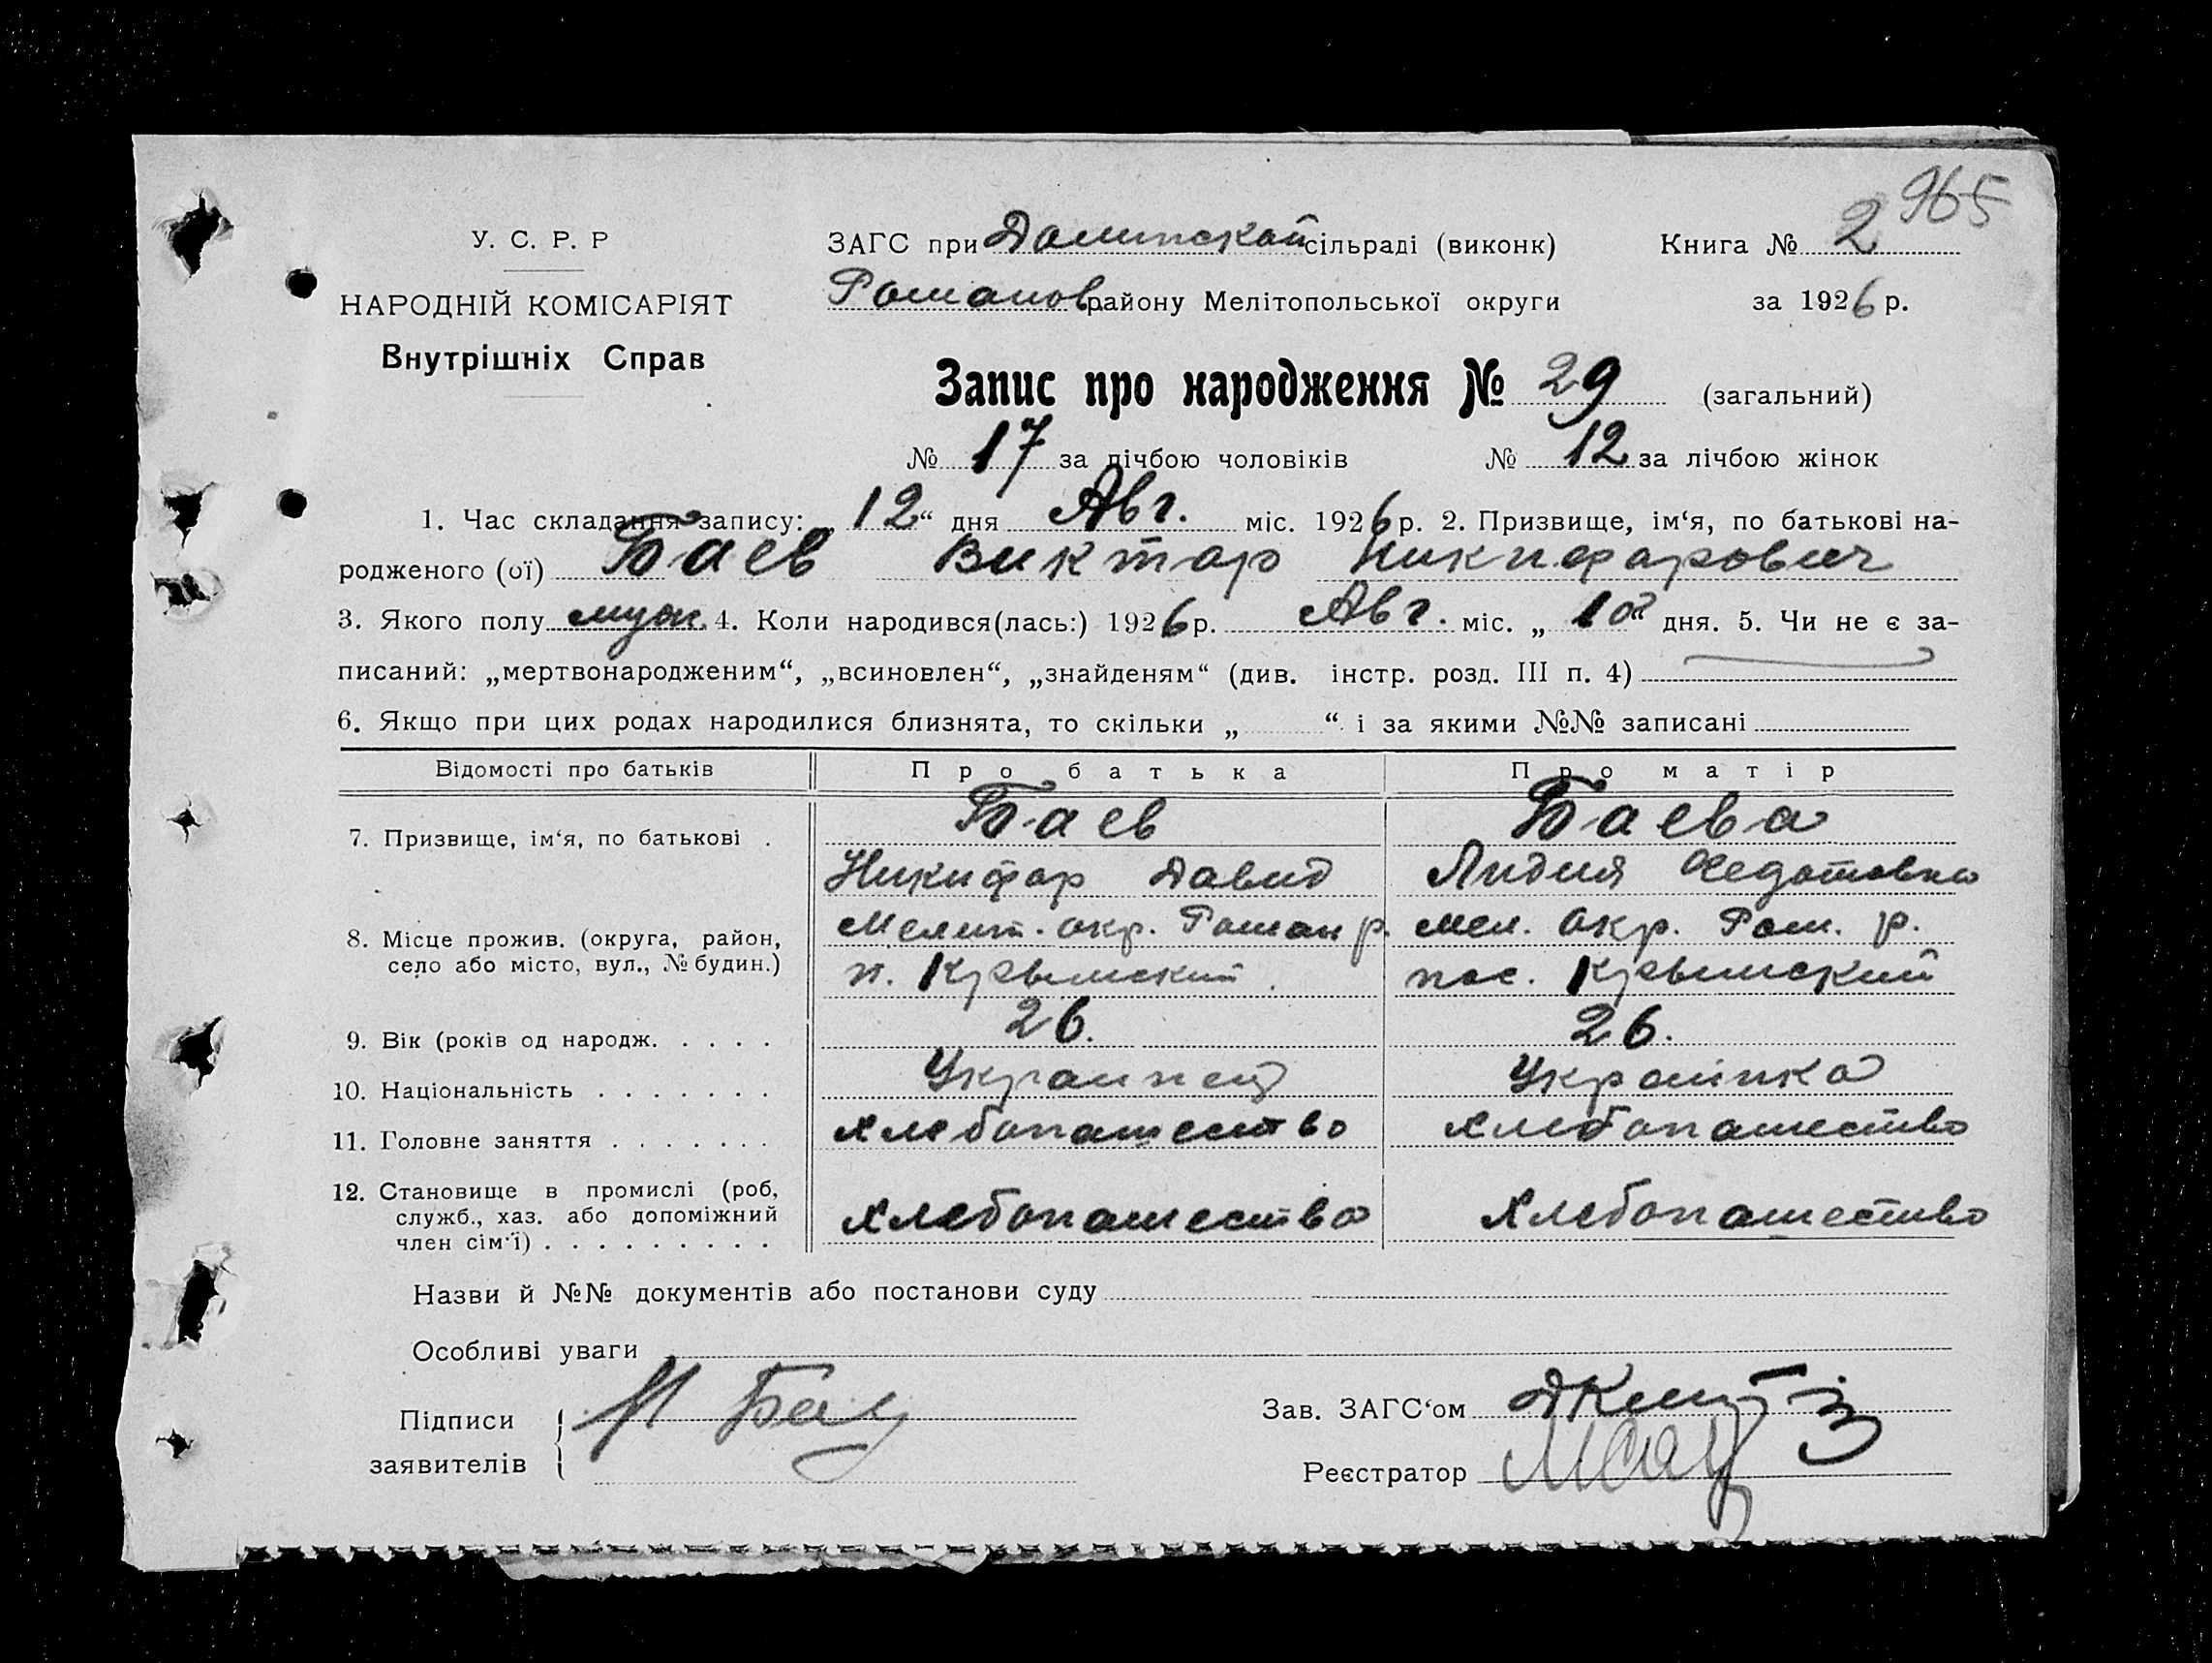 965
У. С. Р. Р
ЗАГС при Долинской сільраді (виконк)
Книга № 2
НАРОДНІЙ КОМІСАРІЯТ
Романов району Мелітопольської округи
за 1926 р.
Внутрішніх Справ
Запис про народження № 29 (загальний)
№ 17 за лічбою чоловіків № 12 за лічбою жінок
1. Час складання запису: „ 12 “ дня Авг. міс. 1926 р. 2. Призвище, ім‘я, по батькові на-
родженого (ої) Баев Виктор Никифорович
3. Якого полу муж. 4. Коли народився(лась:) 1926 р. Авг. міс. „ 10 “ дня. 5. Чи не є за-
писаний: „мертвонародженим“, „всиновлен“, „знайденям“ (див. інстр. розд. III п. 4)
6. Якщо при цих родах народилися близнята, то скільки „ “ і за якими №№ записані
Відомості про батьків Про батька Про матір
Баев Баева
7. Призвище, ім‘я, по батькові .
Никифор Давид Лидия Федотовна
8. Місце прожив. (округа, район, Мелит. окр. Роман р. Мел. окр. Ром. р.
село або місто, вул., № будин.) п. Крымский. пос. Крымский
9. Вік (років од народж. . . . . 26. 26.
10. Національність . . . . . . . Украинец Украінка
11. Головне заняття . . . . . . . хлебопашество хлебопашество
12. Становище в промислі (роб,
служб., хаз. або допоміжний хлебопашество хлебопашество
член сім‘ї) . . . . . . . . .
Назви й №№ документів або постанови суду
Особливі уваги
Підписи
заявителів
Зав. ЗАГС‘ом
Реєстратор